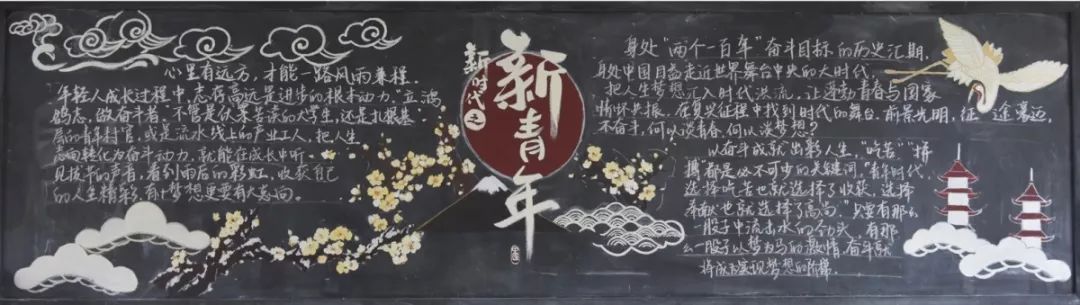 心里有远方，才能一路风雨兼程。
年轻人成长过程中，志存高远是进步的根本动力。"立鸿
鹄志，做奋斗者，不管是伏案苦读的大学生，还是扎根基
层的青年村官，或是流水线上的产业工人，把人生
志向转化为奋斗动力，就能在成长中听
见拔节的声音，看到雨后的彩虹，收获自己
的人生精彩，有梦想更要有人志向。
新时代之
新青年
身处"两个一百年"奋斗目标的历史汇期，
身处中国日益走近世界舞台中央的大时代，
把人生梦想汇入时代洪流，让激动青春与国家
情怀共振，在复兴征程中找到时代的舞台，前景光明，征途寥远，
不奋斗，何以谈青春，何以谈梦想？
以奋斗成就出彩人生，"吃苦""拼
搏"都是必不可少的关键词，"青年时代，
选择吃苦也就选择了收获，选择
奉献也就选择了高尚。"只要有那么
一股子中流击水的劲头，有那
么一股子以梦为马的激情，青年就
将成为实现梦想的阶梯。